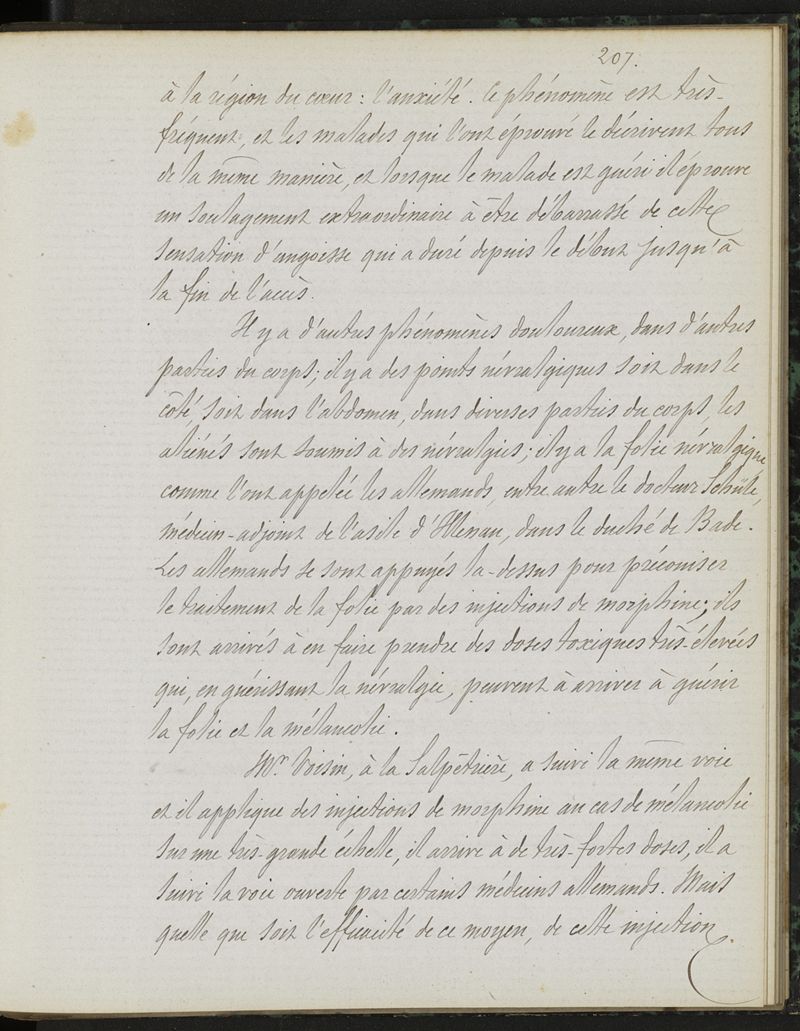 207.
à la région du cœur : l'anxiété. Ce phénomène est très-
fréquent, et les malades qui l'ont éprouvé le décrivent tous
de la même manière, et lorsque le malade est guéri il éprouve
un soulagement extraordinaire à être débarrassé de cette
sensation d'angoisse qui a duré depuis le début jusqu'à
la fin de l'accès.
Il y a d'autres phénomènes douloureux, dans d'autres
parties du corps; il y a des points névralgiques soit dans le
côté, soit dans l'abdomen, dans diverses parties du corps, les
aliénés sont soumis à des névralgies; il y a la folie névralgique
comme l'ont appelée les allemands, entre autre le docteur Schüle,
médecin-adjoint de l'asile d'Illenau, dans le duché de Bade.
Les allemands se sont appuyés là-dessus pour préconiser
le traitement de la folie par des injections de morphine; ils
sont arrivés à en faire prendre des doses toxiques très-élevées
qui, en guérissant la névralgie, peuvent à arriver à guérir
la folie et la mélancolie.
Mr. Voisin, à la Salpêtrière, a suivi la même voie
et il applique des injections de morphine au cas de mélancolie
sur une très-grande échelle, il arrive à de très-fortes doses, il a
suivi la voie ouverte par certains médecins allemands. Mais
quelle que soit l'efficacité de ce moyen, de cette injection